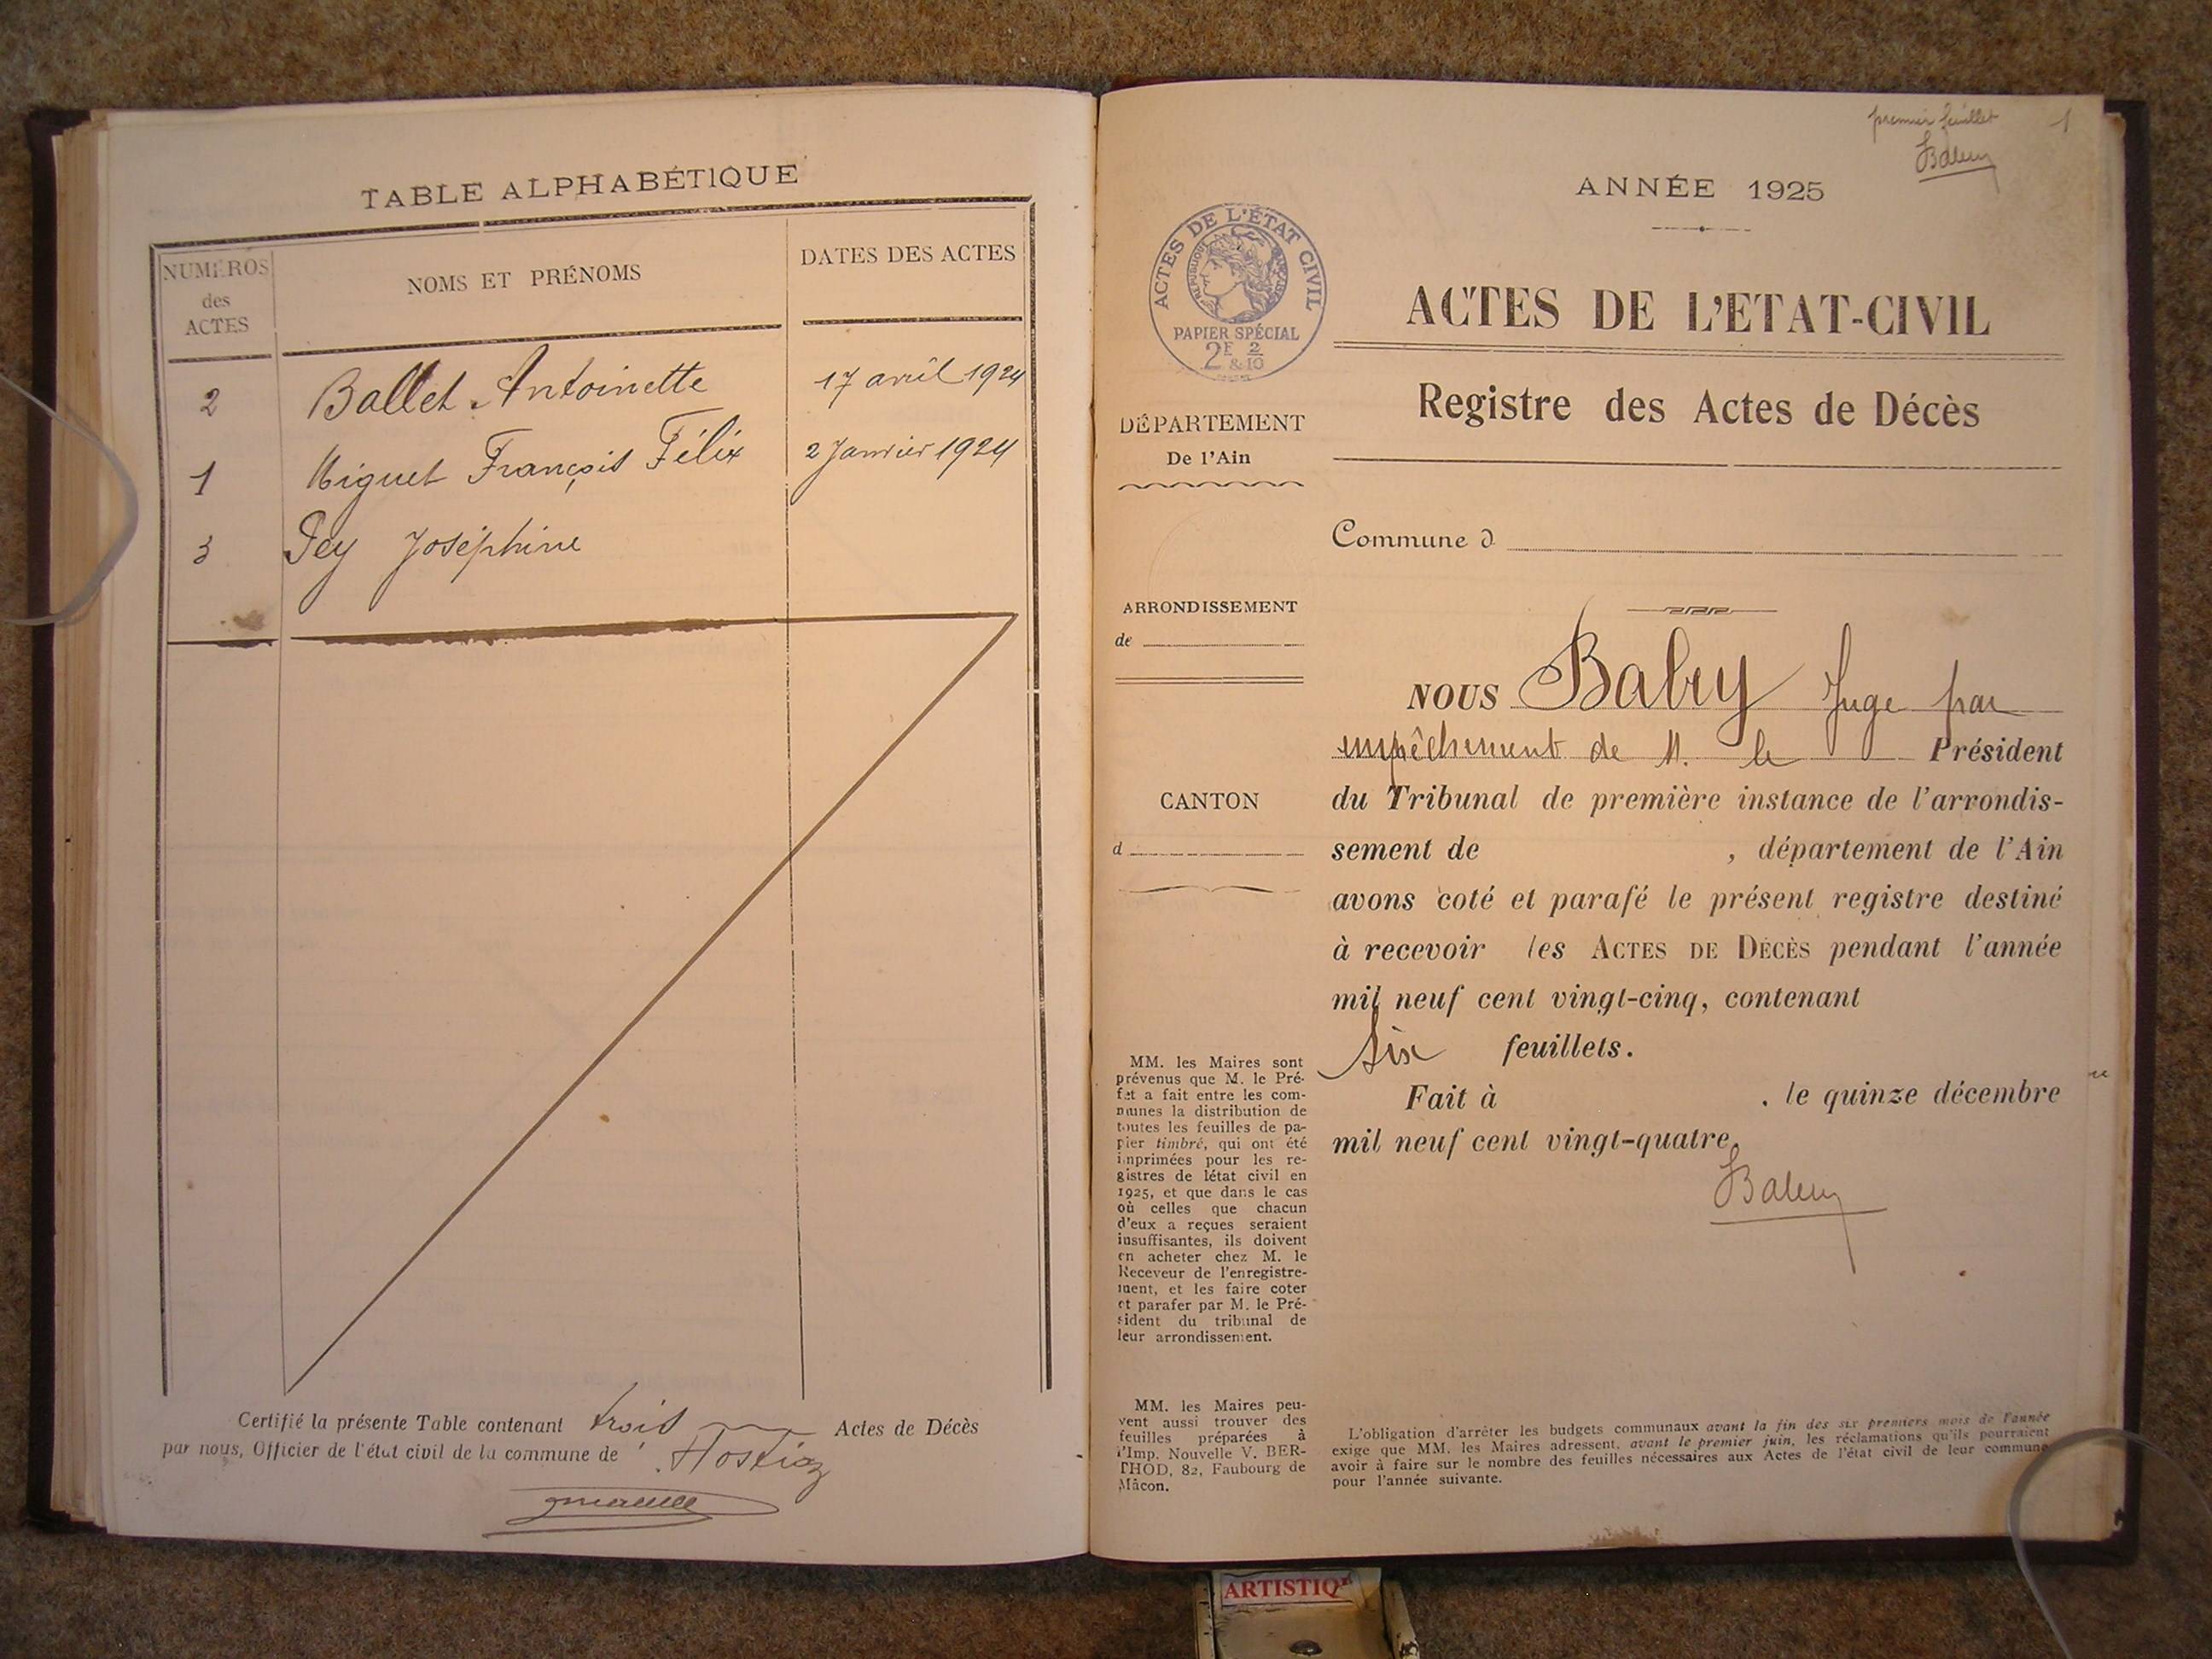 TABLE ALPHABÉTIQUE
NUMÉROS
des
ACTES
NOMS ET PRÉNOMS
DATES DES ACTES
2 Ballet Antoinette 17 avril 1924
1 Miguet François Félix 2 Janvier 1924
3 Pey Joséphine
Certifié la présente Table contenant trois Actes de Décès
par nous, Officier de l'état civil de la commune de Hostiaz
premier feuillet 1
ANNÉE 1925
ACTES DE L'ÉTAT CIVIL
RÉPUBLIQUE FRANÇAISE
PAPIER SPÉCIAL
2F & 2/10
ACTES DE L'ETAT-CIVIL
Registre des Actes de Décès
DÉPARTEMENT
De l'Ain
Commune d
ARRONDISSEMENT
de
CANTON
d
MM. les Maires sont
prévenus que M. le Pré-
fet a fait entre les com-
munes la distribution de
toutes les feuilles de pa-
pier timbré, qui ont été
imprimées pour les re-
gistres de létat civil en
1925, et que dans le cas
où celles que chacun
d'eux a reçues seraient
insuffisantes, ils doivent
en acheter chez M. le
Receveur de l'enregistre-
ment, et les faire coter
et parafer par M. le Pré-
sident du tribunal de
leur arrondissement.
MM. les Maires peu-
vent aussi trouver des
feuilles préparées à
l'Imp. Nouvelle V. BER-
THOD, 82, Faubourg de
Mâcon.
NOUS Juge par
empêchement de M. le Président
du Tribunal de première instance de l'arrondis-
sement de , département de l'Ain
avons coté et parafé le présent registre destiné
à recevoir les ACTES DE DÉCÈS pendant l'année
mil neuf cent vingt-cinq, contenant
six feuillets.
Fait à , le quinze décembre
mil neuf cent vingt-quatre.
L'obligation d'arrêter les budgets communaux avant la fin des six premiers mois de l'année
exige que MM. les Maires adressent, avant le premier juin, les réclamations qu'ils pourraient
avoir à faire sur le nombre des feuilles nécessaires aux Actes de l'état civil de leur commune
pour l'année suivante.
ARTISTIQ